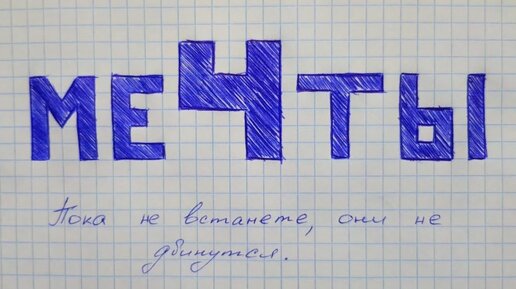 МЕЧТЫ
Пока не встанете, они не
двинутся.